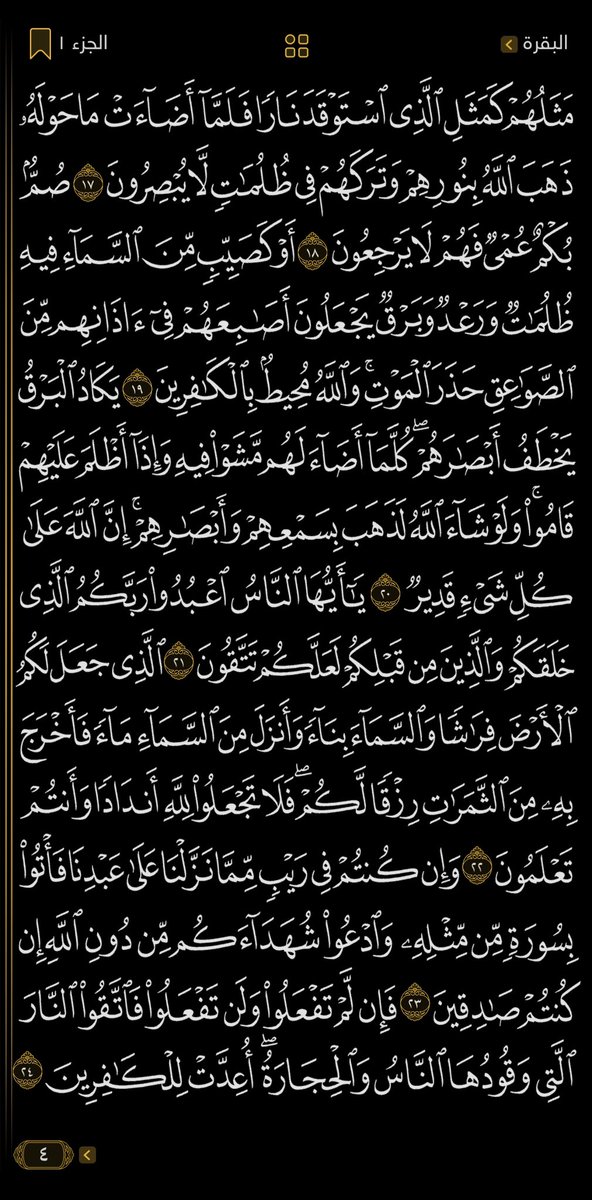 البقرة
الجزء ١
مَثَلُهُمْ كَمَثَلِ ٱلَّذِى ٱسْتَوْقَدَ نَارًا فَلَمَّآ أَضَآءَتْ مَا حَوْلَهُۥ
ذَهَبَ ٱللَّهُ بِنُورِهِمْ وَتَرَكَهُمْ فِى ظُلُمَٰتٍ لَّا يُبْصِرُونَ ١٧ صُمٌّۢ
بُكْمٌ عُمْىٌ فَهُمْ لَا يَرْجِعُونَ ١٨ أَوْ كَصَيِّبٍ مِّنَ ٱلسَّمَآءِ فِيهِ
ظُلُمَٰتٌ وَرَعْدٌ وَبَرْقٌ يَجْعَلُونَ أَصَٰبِعَهُمْ فِىٓ ءَاذَانِهِم مِّنَ
ٱلصَّوَٰعِقِ حَذَرَ ٱلْمَوْتِ ۚ وَٱللَّهُ مُحِيطٌۢ بِٱلْكَٰفِرِينَ ١٩ يَكَادُ ٱلْبَرْقُ
يَخْطَفُ أَبْصَٰرَهُمْ ۖ كُلَّمَآ أَضَآءَ لَهُم مَّشَوْا۟ فِيهِ وَإِذَآ أَظْلَمَ عَلَيْهِمْ
قَامُوا۟ ۚ وَلَوْ شَآءَ ٱللَّهُ لَذَهَبَ بِسَمْعِهِمْ وَأَبْصَٰرِهِمْ ۚ إِنَّ ٱللَّهَ عَلَىٰ
كُلِّ شَىْءٍ قَدِيرٌ ٢٠ يَٰٓأَيُّهَا ٱلنَّاسُ ٱعْبُدُوا۟ رَبَّكُمُ ٱلَّذِى
خَلَقَكُمْ وَٱلَّذِينَ مِن قَبْلِكُمْ لَعَلَّكُمْ تَتَّقُونَ ٢١ ٱلَّذِى جَعَلَ لَكُمُ
ٱلْأَرْضَ فِرَٰشًا وَٱلسَّمَآءَ بِنَآءً وَأَنزَلَ مِنَ ٱلسَّمَآءِ مَآءً فَأَخْرَجَ
بِهِۦ مِنَ ٱلثَّمَرَٰتِ رِزْقًا لَّكُمْ ۖ فَلَا تَجْعَلُوا۟ لِلَّهِ أَندَادًا وَأَنتُمْ
تَعْلَمُونَ ٢٢ وَإِن كُنتُمْ فِى رَيْبٍ مِّمَّا نَزَّلْنَا عَلَىٰ عَبْدِنَا فَأْتُوا۟
بِسُورَةٍ مِّن مِّثْلِهِۦ وَٱدْعُوا۟ شُهَدَآءَكُم مِّن دُونِ ٱللَّهِ إِن
كُنتُمْ صَٰدِقِينَ ٢٣ فَإِن لَّمْ تَفْعَلُوا۟ وَلَن تَفْعَلُوا۟ فَٱتَّقُوا۟ ٱلنَّارَ
ٱلَّتِى وَقُودُهَا ٱلنَّاسُ وَٱلْحِجَارَةُ ۖ أُعِدَّتْ لِلْكَٰفِرِينَ ٢٤
٤